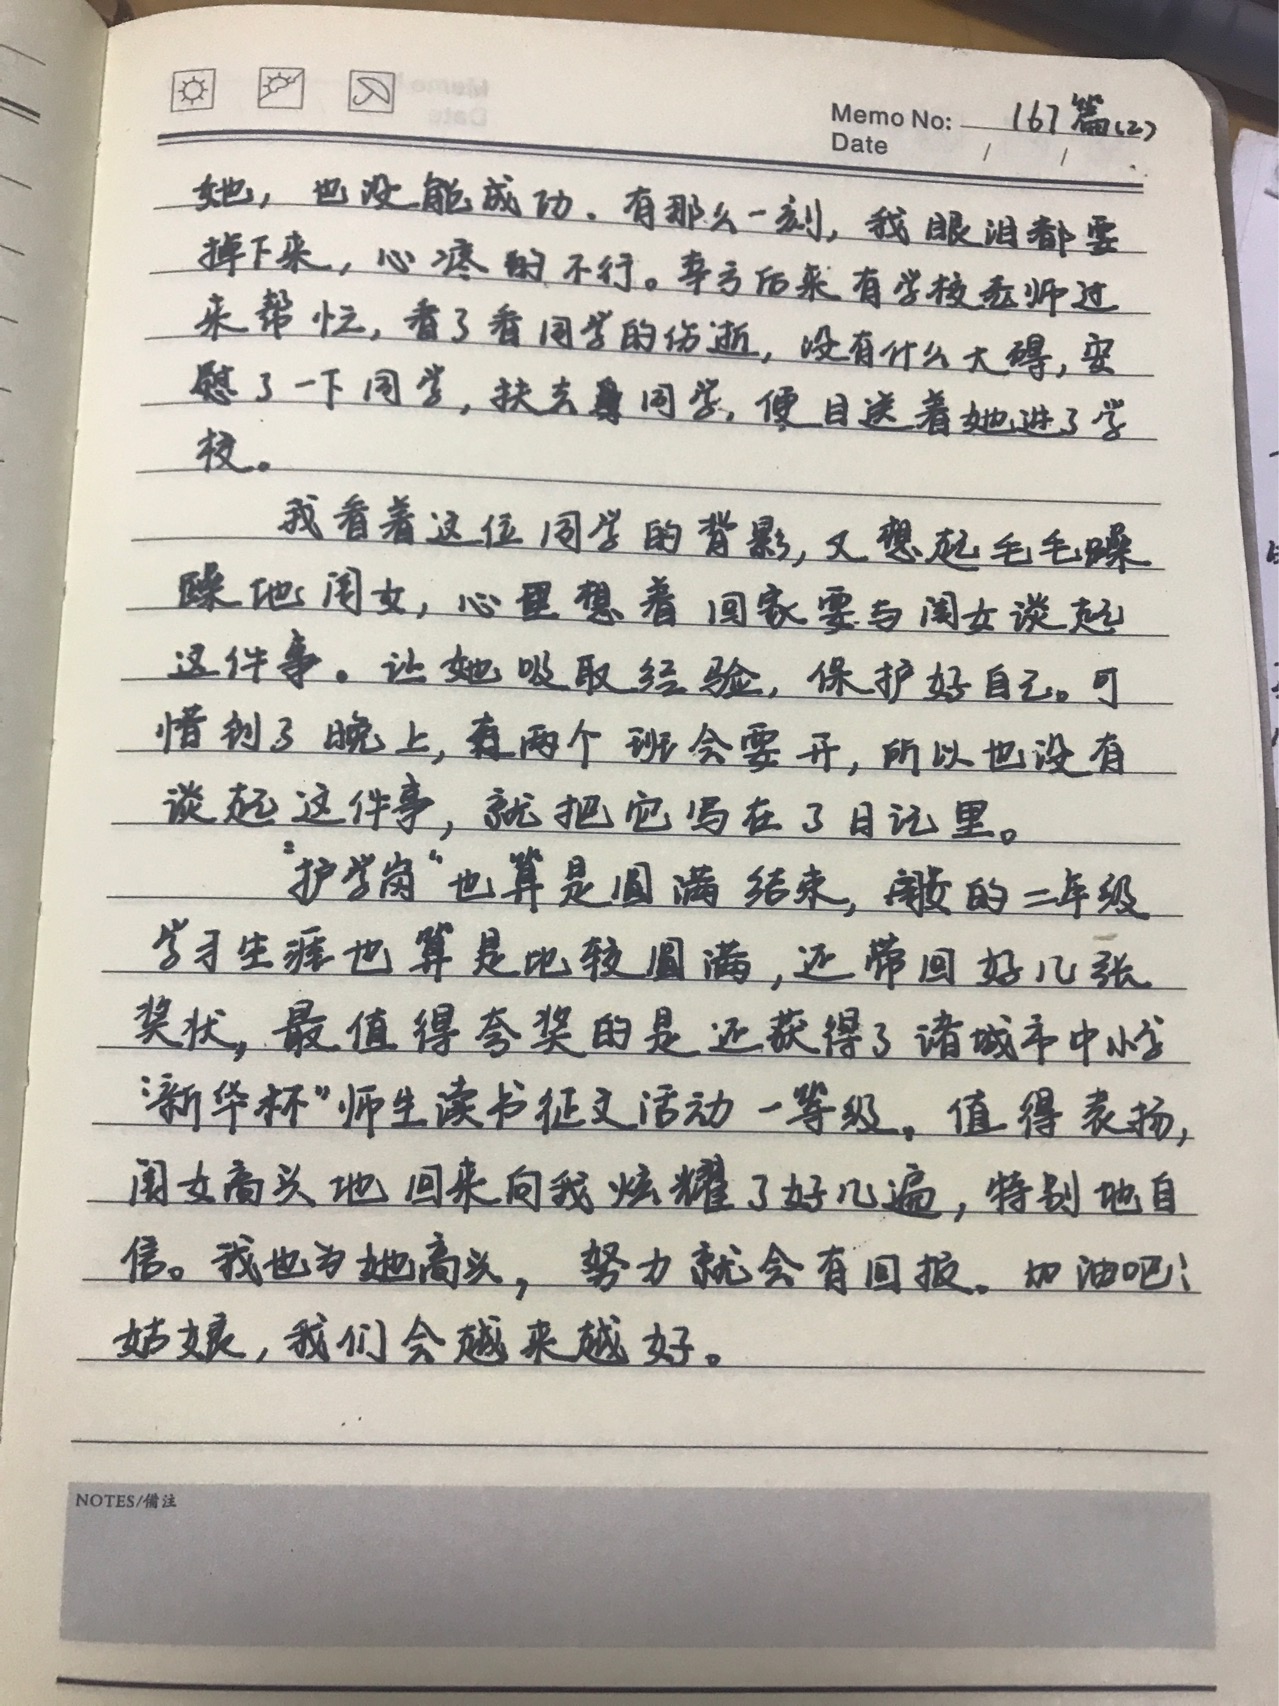 Memo No: 167篇(2)
Date / /
她，也没能成功。有那么一刻，我眼泪都要
掉下来，心疼的不行。幸亏后来有学校老师过
来帮忙，看了看同学的伤逝，没有什么大碍，安
慰了一下同学，扶去身同学，便目送着她进了学
校。
我看着这位同学的背影，又想起毛毛躁
躁地闺女，心里想着回家要与闺女谈起
这件事。让她吸取经验，保护好自己。可
惜到了晚上，有两个班会要开，所以也没有
谈起这件事，就把它写在了日记里。
“护学岗“也算是圆满结束，闺女的二年级
学习生涯也算是比较圆满，还带回好几张
奖状，最值得夸奖的是还获得了诸城市中小学
“新华杯”师生读书征文活动一等级。值得表扬，
闺女高兴地回来向我炫耀了好几遍，特别地自
信。我也为她高兴，努力就会有回报。加油吧！
姑娘，我们会越来越好。
NOTES/備注